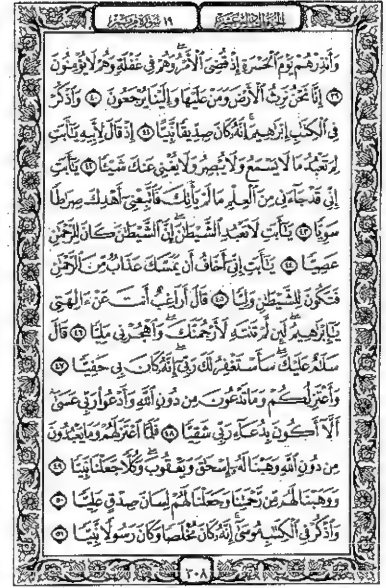 الجزء السادس عشر
١٩ سورة مريم
وَأَنذِرْهُمْ يَوْمَ ٱلْحَسْرَةِ إِذْ قُضِىَ ٱلْأَمْرُ وَهُمْ فِى غَفْلَةٍ وَهُمْ لَا يُؤْمِنُونَ
٣٩ إِنَّا نَحْنُ نَرِثُ ٱلْأَرْضَ وَمَنْ عَلَيْهَا وَإِلَيْنَا يُرْجَعُونَ ٤٠ وَٱذْكُرْ
فِى ٱلْكِتَٰبِ إِبْرَٰهِيمَ إِنَّهُۥ كَانَ صِدِّيقًا نَّبِيًّا ٤١ إِذْ قَالَ لِأَبِيهِ يَٰٓأَبَتِ
لِمَ تَعْبُدُ مَا لَا يَسْمَعُ وَلَا يُبْصِرُ وَلَا يُغْنِى عَنكَ شَيْـًٔا ٤٢ يَٰٓأَبَتِ
إِنِّى قَدْ جَآءَنِى مِنَ ٱلْعِلْمِ مَا لَمْ يَأْتِكَ فَٱتَّبِعْنِىٓ أَهْدِكَ صِرَٰطًا
سَوِيًّا ٤٣ يَٰٓأَبَتِ لَا تَعْبُدِ ٱلشَّيْطَٰنَ إِنَّ ٱلشَّيْطَٰنَ كَانَ لِلرَّحْمَٰنِ
عَصِيًّا ٤٤ يَٰٓأَبَتِ إِنِّىٓ أَخَافُ أَن يَمَسَّكَ عَذَابٌ مِّنَ ٱلرَّحْمَٰنِ
فَتَكُونَ لِلشَّيْطَٰنِ وَلِيًّا ٤٥ قَالَ أَرَاغِبٌ أَنتَ عَنْ ءَالِهَتِى
يَٰٓإِبْرَٰهِيمُ لَئِن لَّمْ تَنتَهِ لَأَرْجُمَنَّكَ وَٱهْجُرْنِى مَلِيًّا ٤٦ قَالَ
سَلَٰمٌ عَلَيْكَ سَأَسْتَغْفِرُ لَكَ رَبِّىٓ إِنَّهُۥ كَانَ بِى حَفِيًّا ٤٧
وَأَعْتَزِلُكُمْ وَمَا تَدْعُونَ مِن دُونِ ٱللَّهِ وَأَدْعُوا۟ رَبِّى عَسَىٰٓ
أَلَّآ أَكُونَ بِدُعَآءِ رَبِّى شَقِيًّا ٤٨ فَلَمَّا ٱعْتَزَلَهُمْ وَمَا يَعْبُدُونَ
مِن دُونِ ٱللَّهِ وَهَبْنَا لَهُۥٓ إِسْحَٰقَ وَيَعْقُوبَ وَكُلًّا جَعَلْنَا نَبِيًّا ٤٩
وَوَهَبْنَا لَهُم مِّن رَّحْمَتِنَا وَجَعَلْنَا لَهُمْ لِسَانَ صِدْقٍ عَلِيًّا ٥٠
وَٱذْكُرْ فِى ٱلْكِتَٰبِ مُوسَىٰٓ إِنَّهُۥ كَانَ مُخْلَصًا وَكَانَ رَسُولًا نَّبِيًّا ٥١
٣٠٨